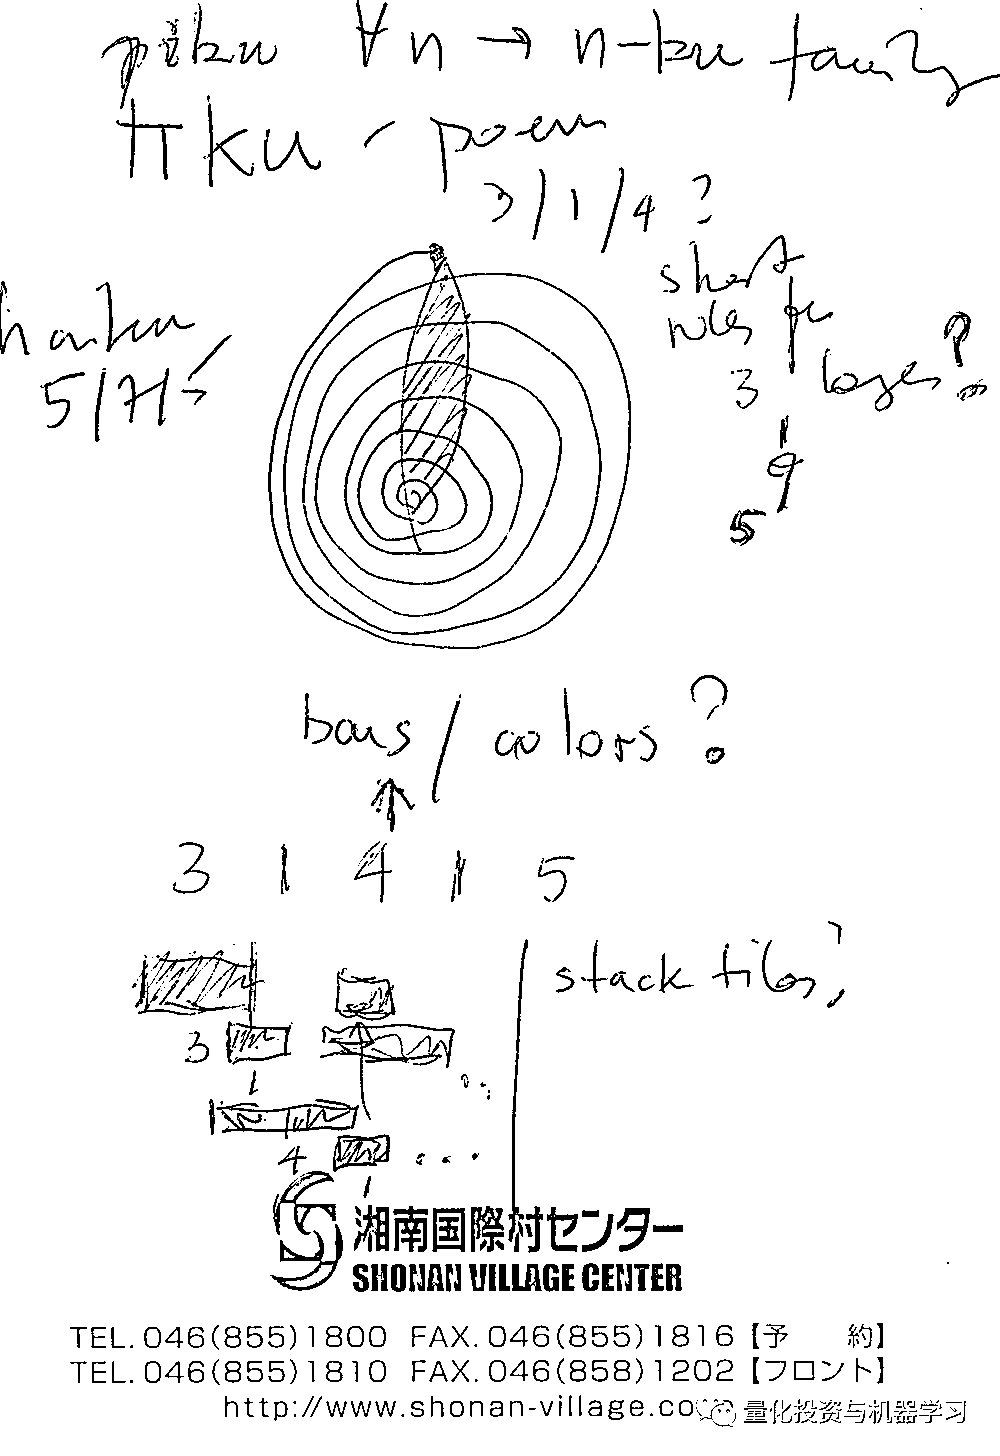 piku ∀n → n-ku family
πku - poem
3/1/4 ?
haiku
5/7/5
short
rules for
3
1
4
5
bars / colors ?
3 1 4 1 5
stack tiles?
3
1
4
...
1
湘南国際村センター
SHONAN VILLAGE CENTER
TEL. 046(855)1800 FAX. 046(855)1816【予 約】
TEL. 046(855)1810 FAX. 046(858)1202【フロント】
http://www.shonan-village.co
量化投资与机器学习